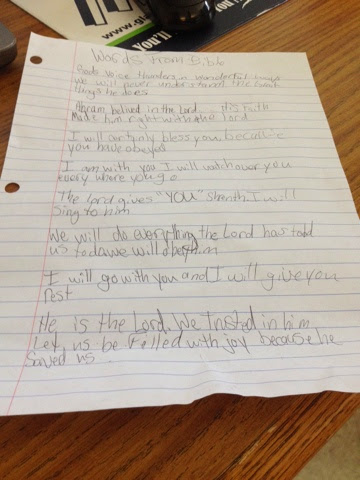 www.g
You'll
Words from Bible
Gods voice thunders in wonderful ways
we will never understand the Great
things he does
Abram belived in the Lord. His faith
Made him right with the lord
I will certinly bless you, because
you have obeyed
I am with you I will watch over you
every where you go
The Lord gives "YOU" strenth. I will
Sing to him
We will do everything the Lord has told
us to do we will obey him
I will go with you and I will give you
Rest
He is the Lord. We Trusted in him
Let us be filled with joy because he
Saved us.